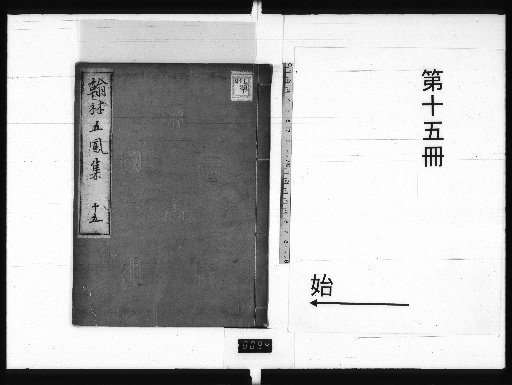 第十五冊
始
翰林五鳳集 十五